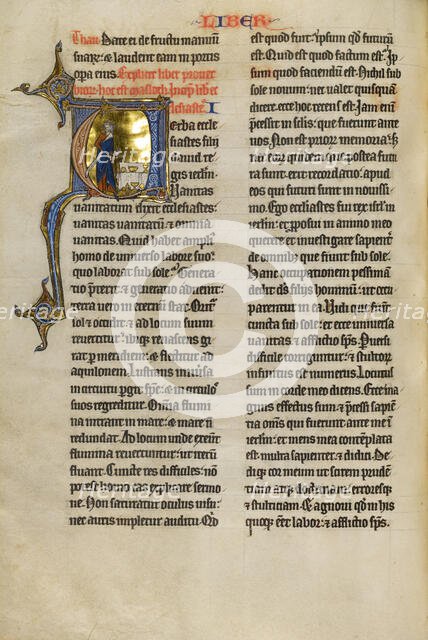 LIBER
Date ei de fructu manuum
suarz: & laudent eam in portis
opa eius Explicit liber prouer
bior hoc est masloth. Incipit lib
ecclesiastes I
Uerba eccle
siastes filij
dauid re
gis ierlm:
Uanitas
uanitatum dixit ecclesiastes:
uanitas uanitatum & omnia
uanitas. Quid habet ampli
homo de uniuerso labore suo
quo laborat sub sole? Genera
tio preterit & generatio aduenit:
terra uero in eternum stat. Oritur
sol & occidit: & ad locum suum
reuertitur: ibiqz renascens gi
rat per meridiem: & flectitur ad
aquilonem. Lustrans uniuersa
in circuitu pergit sps: & in circulos
suos regreditur. Omnia flumi
na intrant in mare: & mare non
redundat. Ad locum unde exeunt
flumina reuertuntur: ut iterum
fluant. Cuncte res difficiles: non
potest homo eas explicare sermo
ne. Non saturatur oculus uisu:
nec auris impletur auditu. Qd
est quod fuit? Ipsum qd futurum
est. Quid est quod factum est? Ip
sum quod faciendum est. Nichil sub
sole nouum: nec ualet quisquam
dicere. ecce hoc recens est. Iam enim
precessit in seclis: que fuerunt ante
nos. Non est priorum memoria:
sed nec eorum quidem que postea futura
sunt: erit recordatio. apud
eos qui futuri sunt in nouissi
mo. Ego ecclesiastes fui rex isrl in
ierlm: & proposui in animo meo
querere & inuestigare sapienter
de omnibus que fiunt sub sole.
Hanc occupationem pessimam
dedit deus filijs hominum: ut occu
parentur in ea. Uidi que fiunt
cuncta sub sole: & ecce uniuersa
uanitas: & afflictio sps. Peruersi
difficile corriguntur: & stultorum
infinitus est numerus. Locutus
sum in corde meo dicens. Ecce ma
gnus effectus sum: & precessi sapien
tia omnes qui fuerunt ante me in
ierlm: et mens mea contemplata
est multa sapienter: & didici. De
diqz cor meum ut scirem pruden
tiam atqz doctrinam: erroresqz
& stulticiam. & agnoui qd in his
quoqz esset labor: & afflictio sps.
Heritage
Images